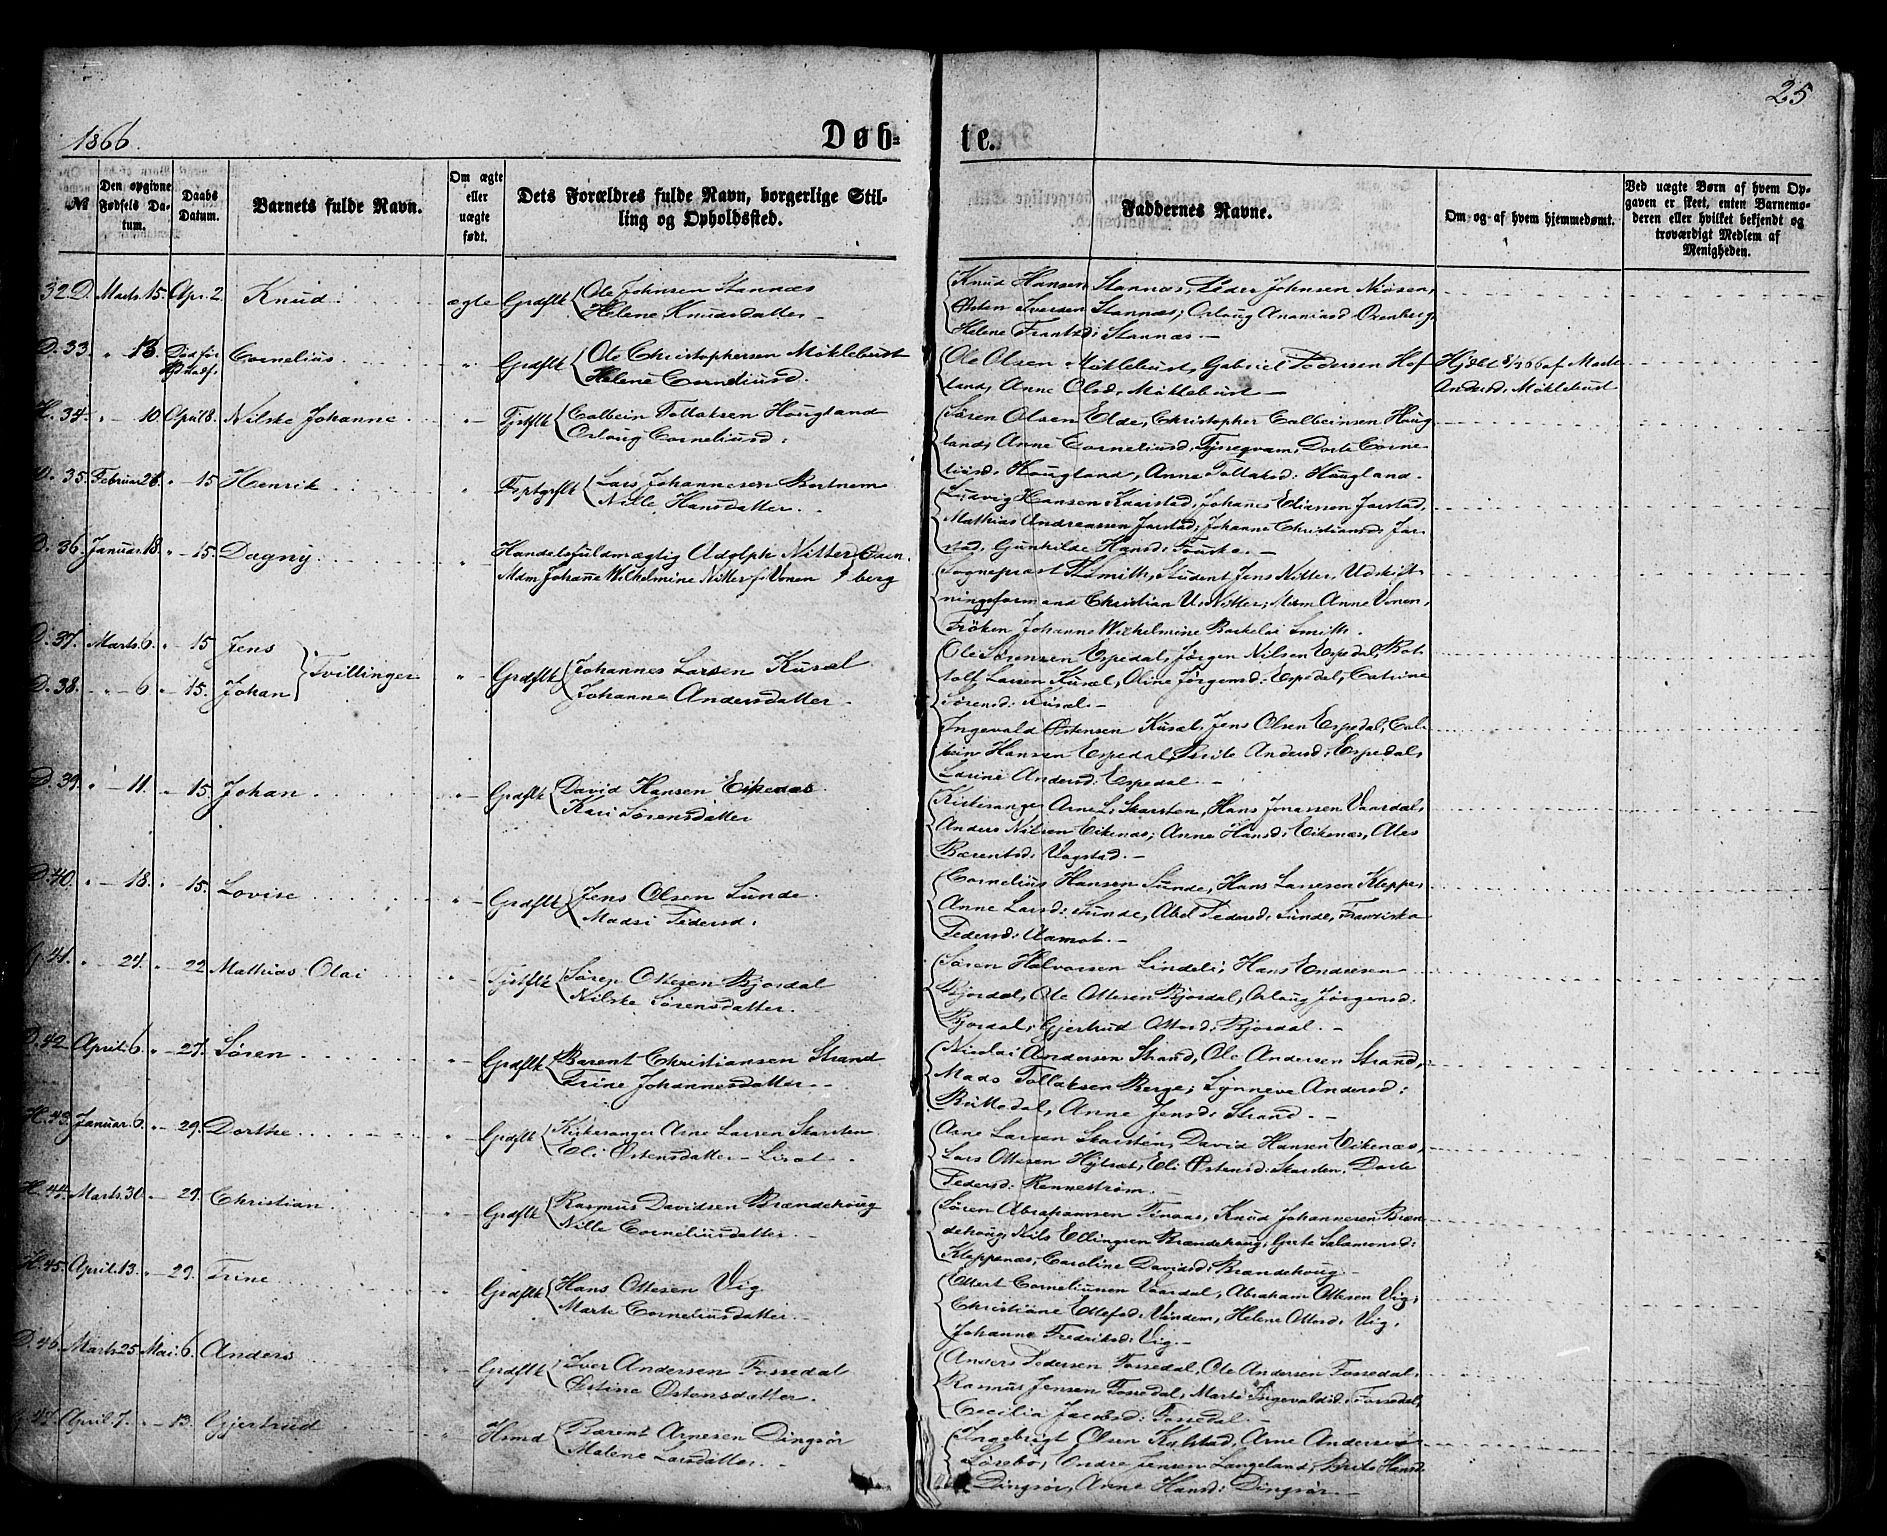 25
1866.
Døb-
te.
№
Den opgivne Fødsels Datum.
Daabs Datum.
Barnets fulde Navn.
Om ægte eller uægte født.
Dets Forældres fulde Navn, borgerlige Stilling og Opholdssted.
Faddernes Navne.
Om og af hvem hjemmedøbt.
Ved uægte Børn af hvem Opgaven er skeet, enten Barnemoderen eller hvilket bekjendt og troværdigt Medlem af Menigheden.
32 D. Marts 15. Apr. 2. Knud ægte Grdflk Ole Johnsen Stannæs
Helene Knudsdatter
Knud Hansen Stannæs, Peder Johnsen
Østen Iversen Stannæs, Orloug
Helene Stannæs.
D. 33. " 13. Cornelius " Grdflk Ole Christophersen Möklebust
Helene Corneliusd.
Ole Olsen Möklebust, Gabriel Pedersen Hof
land, Anne Olsd. Möklebust
af
Andersd. Möklebust
H. 34. " 10. April 8. Nilske Johanne " Colbein Tollaksen Hougland
Orloug Corneliusd:
Søren Olsen Elde, Christopher Colbeinsen Houg
land, Anne Corneliusd. Dorte Corne
liusd. Hougland, Anne Tollaksd: Hougland.
D. 35. Februar 26. " 15 Henrik " Lars Johannesen
Nille Hansdatter.
Ludvig Hansen Johanes Eliassen Jarstad,
Mathias Andreassen Jarstad, Johanne Christiansd. Jar
stad, Gunhilde Hansd:
D. 36. Januar 18. " 15. Dagny " Handelsfuldmægtig Adolph Nitter Osen
Mdm Johanne Wilhelmine Nitter f. Vonen berg
Sogneprest Smith, Student Jens Nitter, Udskift
ningsformand Christian U. Nitter, Mdm Anne Vonen,
Frøken Johanne Wilhelmine Smith.
D. 37. Marts 6. " 15 Jens
D. 38. " 6 " 15. Johan Tvillinger " Grdflk Johannes Larsen Kusæl
Johanne Andersdatter.
Ole Sørensen Espedal, Jørgen Nilsen Espedal, Bot
tolf Larsen Kusæl, Oline Jørgensd: Espedal, Catrine
Sørensd: Kusæl.
Ingevald Østensen Kusæl, Jens Olsen Espedal, Col
bein Hansen Espedal, Brite Andersd: Espedal,
Larine Andersd: Espedal.
D. 39. " 11. " 15. Johan " Grdflk David Hansen Eikenæs
Kari Sørensdatter
Kirkesanger Arne L. Skarsten, Hans Jonassen Vaardal,
Anders Nilsen Eikenæs, Anne Hansd: Eikenæs,
Bærentsd: Vagstad.
D. 40. " 18. " 15. Lovise " Grdflk Jens Olsen Sunde
Madsi Pedersd:
Cornelius Hansen Sunde, Hans Larsen Kleppe,
Anne Larsd: Sunde, Abel Pedersd: Sunde, Franziska
Pedersd: Aamot.
G. 41. " 24. " 22 Mathias Olai " Søren Ottesen Bjordal
Nilske Sørensdatter.
Søren Halvorsen Lindeli, Hans Endresen
Bjordal, Ole Ottesen Bjordal, Orloug Jørgensd:
Bjordal, Gjertrud Ottesd: Bjordal.
D. 42. April 6. " 27. Søren " Grdflk Barent Christiansen Strand
Trine Johannesdatter
Nicolai Andersen Strand, Ole Andersen Strand,
Mads Tollaksen Berge, Synneve Andersd:
Anne Jensd: Strand.
H. 43. Januar 6. " 29. Dorthe " Grdflk Kirkesanger Arne Larsen Skarsten
Eli Østensdatter
Arne Larsen Skarsten, David Hansen Eikenæs,
Lars Ottesen Eli Østensd: Skarsten, Dorte
Pedersd: Rennestrøm.
H. 44. Marts 30. " 29. Christian " Grdflk Rasmus Davidsen Brændehoug
Nille Corneliusdatter.
Søren Abrahamsen Knud Johannesen Bræn
dehoug, Nils Ellingsen Brændehoug, Salamonsd:
Kleppenæs, Caroline Davidsd: Brændehoug
H. 45. April 13. " 29. Trine " Grdflk Hans Ottesen Vig
Marte Corneliusdatter.
Ottert Corneliusen Vaardal, Abraham Ottesen Vig,
Christiane Helene Ottesd: Vig,
Johanne Fredriksd: Vig.
D. 46. Marts 25 Mai. 6. Anders " Grdflk Iver Andersen Fossedal
Østine Østensdatter.
Anders Pedersen Fossedal, Ole Andersen Fossedal,
Rasmus Jensen Fossedal, Marte Ingevaldsd: Fossedal,
Cecilia Jacobsd: Fossedal.
47. April 7. " 13. Gjertrud " Hsmd Bærent Arnesen Dingsør
Malene Larsdatter.
Ingebrigt Olsen Arne Andersen
Endre Jensen Langeland, Brite Hansd:
Dingsør, Anne Hansd: Dingsør.